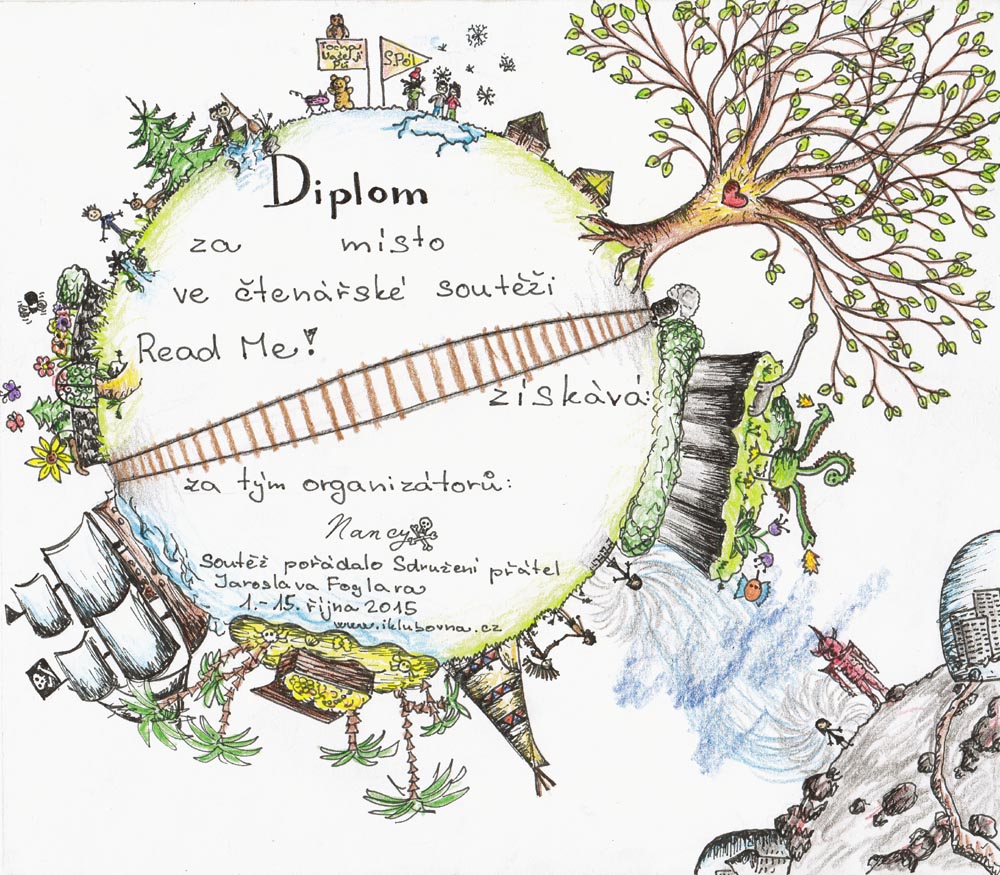 S.Pól
Diplom
za místo
ve čtenářské soutěži
Read Me!
získává:
za tým organizátorů:
Nancy
Soutěž pořádalo Sdružení přátel
Jaroslava Foglara
1.-15. října 2015
www.iklubovna.cz